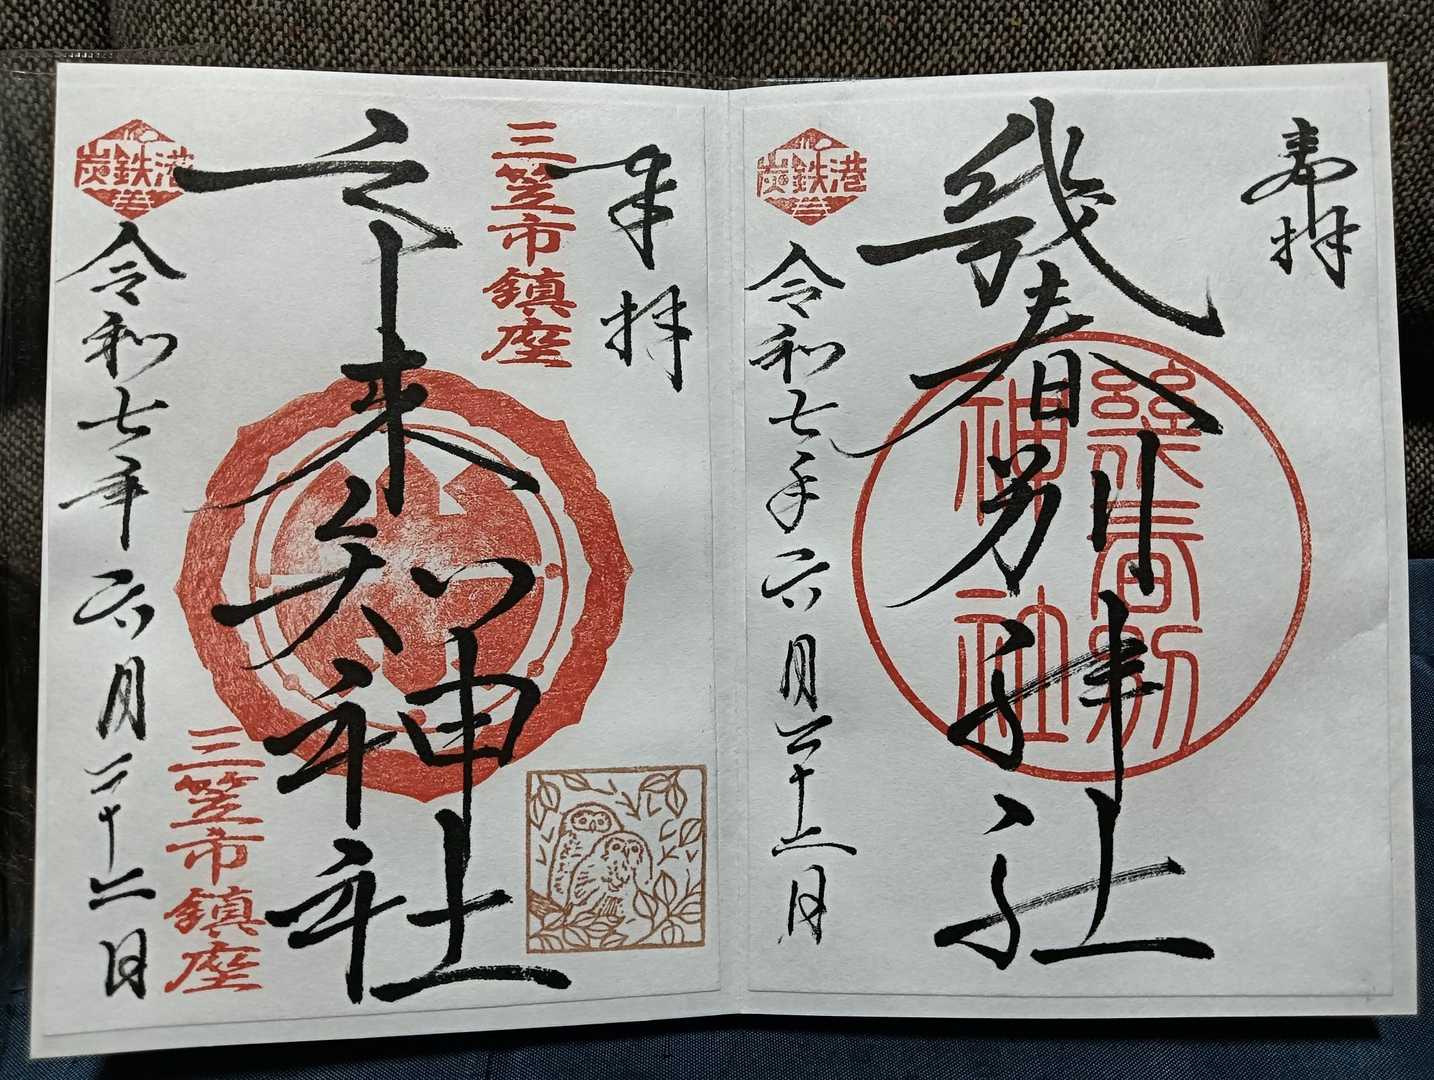 奉拝
幾春別神社
幾春別
神社
炭鉄港
令和七年六月二十二日
奉拝
三笠市鎮座
市来知神社
炭鉄港
令和七年六月二十二日
三笠市鎮座